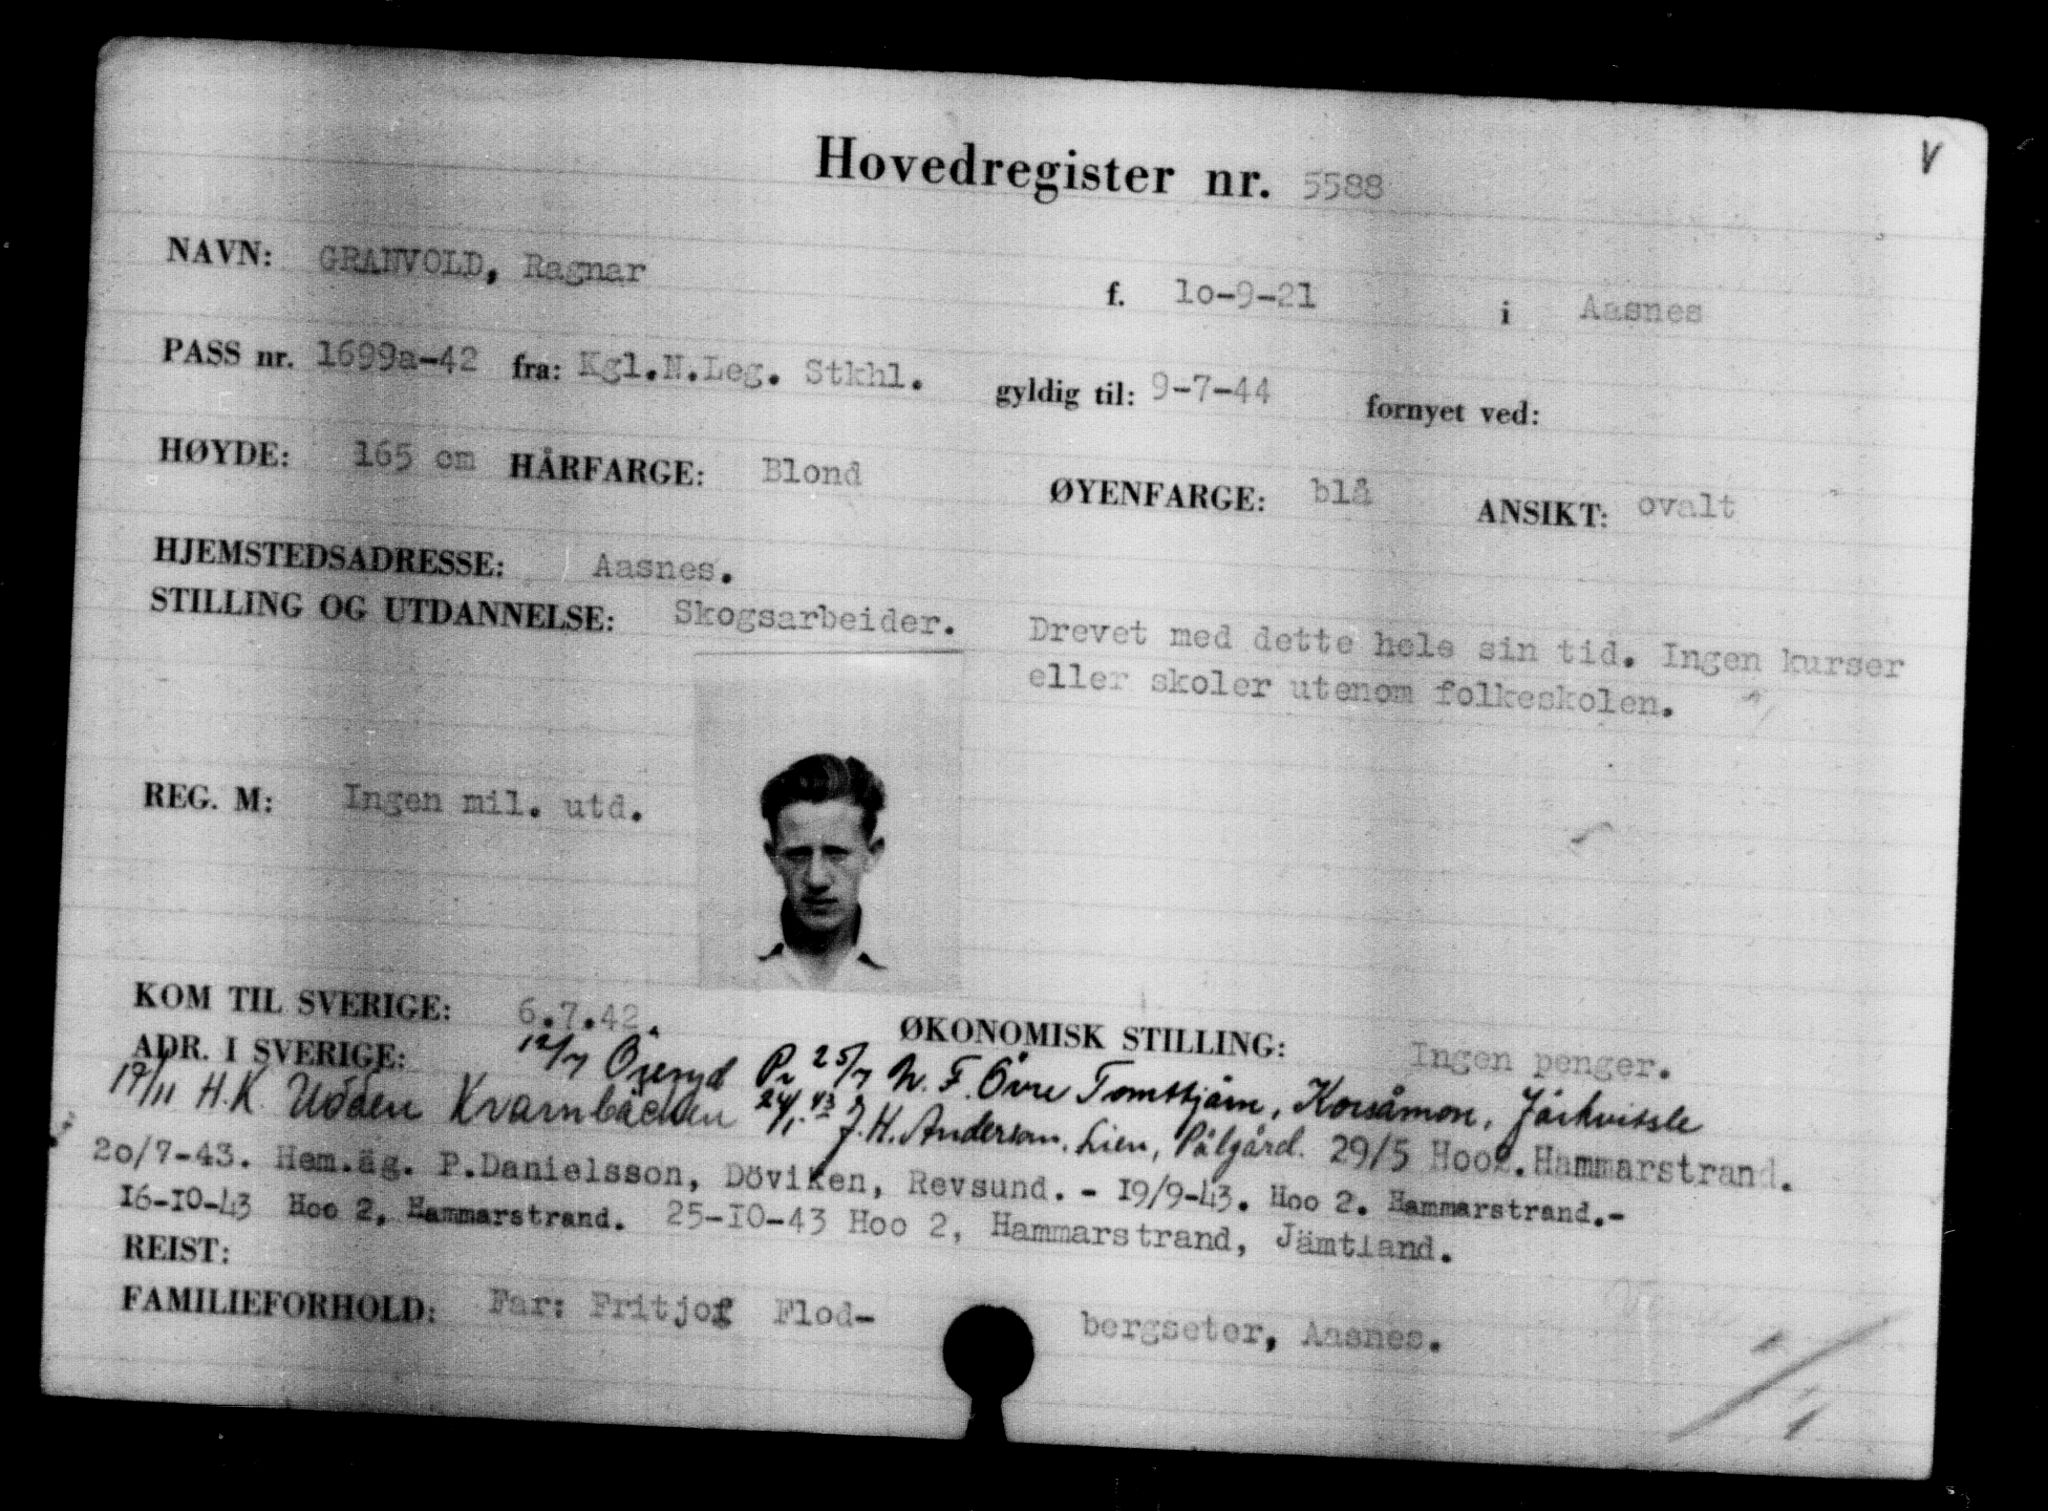 V
Hovedregister nr. 5588
NAVN: GRANVOLD, Ragnar f. 1o-9-21 i Aasnes
PASS nr. 1699a-42 fra: Kgl.N.Leg. Stkhl. gyldig til: 9-7-44 fornyet ved:
HØYDE: 165 cm HÅRFARGE: Blond ØYENFARGE: blå ANSIKT: ovalt
HJEMSTEDSADRESSE: Aasnes.
STILLING OG UTDANNELSE: Skogsarbeider. Drevet med dette hele sin tid. Ingen kurser
eller skoler utenom folkeskolen.
REG. M: Ingen mil. utd.
KOM TIL SVERIGE: 6.7.42. ØKONOMISK STILLING: Ingen penger.
ADR. I SVERIGE: 12/7 Öreryd Pr 25/7 W. F. Övre Tomstjärn, Korsåmon, Järkvissle
17/11 H.K. Udden Kvarnbäcken 24/1.43 J.H. Anderson. Lien, Pålgård. 29/5 Hoo2. Hammarstrand.
20/7-43. Hem.äg. P.Danielsson, Döviken, Revsund. - 19/9-43. Hoo 2. Hammarstrand.-
16-10-43 Hoo 2, Hammarstrand. 25-10-43 Hoo 2, Hammarstrand, Jämtland.
REIST:
FAMILIEFORHOLD: Far: Fritjof Flod- bergseter, Aasnes.